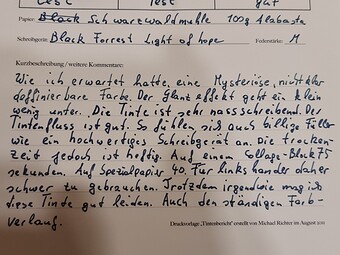 Test Test gut
Papier: Black Schwarzwaldmühle 100g Alabaster
Schreibgerät: Black Forrest Light of hope Federstärke: M
Kurzbeschreibung / weitere Kommentare:
Wie ich erwartet hatte, eine Mysteriöse, nicht klar
deffinierbare Farbe. Der Glanzeffekt geht ein klein
wenig unter. Die Tinte ist sehr nassschreibend. Der
Tintenfluss ist gut. So fühlen sich auch billige Füller
wie ein hochwertiges Schreibgerät an. Die trocken-
zeit jedoch ist heftig. Auf einem Collage-Block 75
sekunden. Auf Spezialpapier 40. Für linkshänder daher
schwer zu gebrauchen. Trotzdem irgendwie mag ich
diese Tinte gut leiden. Auch den ständigen Farb-
verlauf.
Druckvorlage „Tintenbericht" erstellt von Michael Richter im August